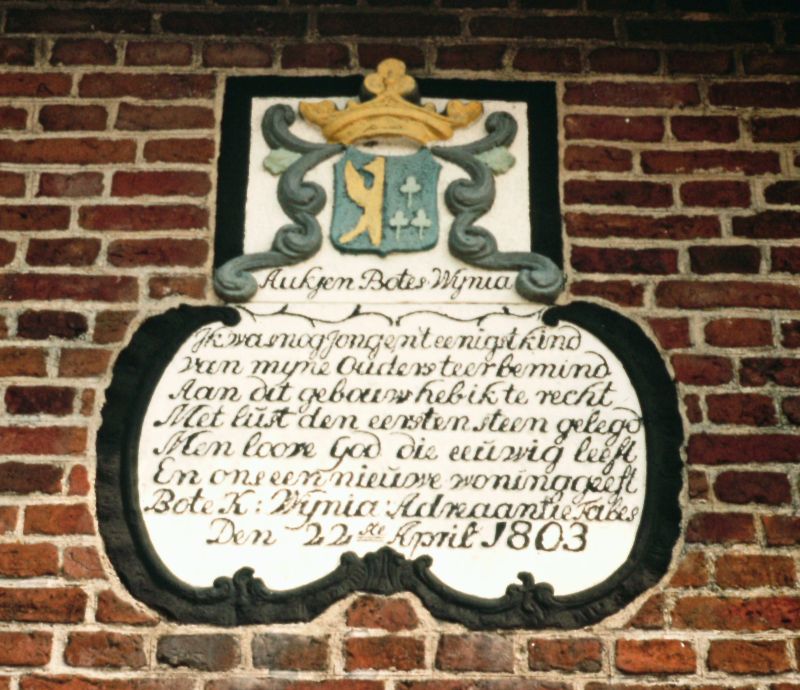 Aukjen Botes Wynia
Ik was nog jong en 't eenigst kind
van myne Ouders teer bemind
Aan dit gebouws heb ik te recht
Met lust den eersten steen gelegd
Men loove God die eeuwig leeft
En ons een nieuwe woning geeft
Bote K: Wynia: Adreaantie Tabes
Den 22ste April 1803